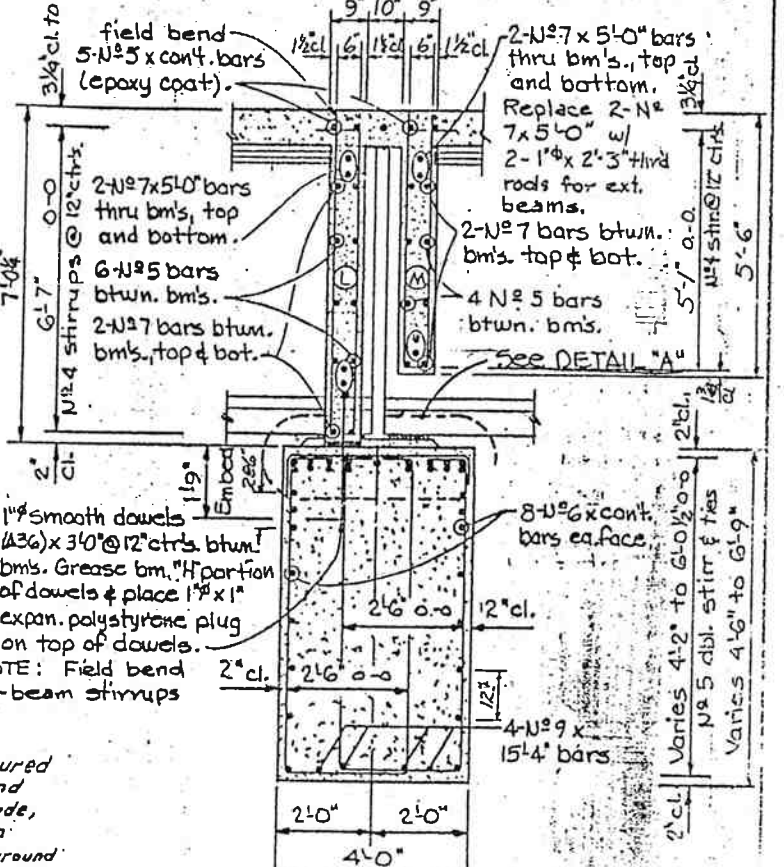 9" 10" 9"
1½"cl 6" 1½"cl 6" 1½"cl.
3¼" cl. to
field bend
5-Nº5 x cont. bars
(epoxy coat).
2-Nº7 x 5'-0" bars
thru bm's., top
and bottom.
Replace 2-Nº
7x5'-0" w/
2-1"φ x 2'-3" thrd
rods for ext.
beams.
3¼" cl.
2-Nº7x5'-0" bars
thru bm's, top
and bottom.
6-Nº5 bars
btwn. bm's.
2-Nº7 bars btwn.
bm's., top & bot.
2-Nº7 bars btwn.
bm's. top & bot.
4 Nº 5 bars
btwn. bm's.
See DETAIL "A"
L
M
7'-0¼"
6'-7" o-o
Nº4 stirrups @ 12" ctrs.
2" cl.
5'-1" o-o.
Nº4 stir. @ 12" ctrs.
5'-6"
1¾ cl
2" cl.
1'-9"
Embed
1"φ smooth dowels
(A36) x 3'-0" @ 12" ctrs. btwn.
bm's. Grease bm. "H" portion
of dowels & place 1"φ x 1"
expan. polystyrene plug
on top of dowels.
NOTE: Field bend
-beam stirrups
8-Nº6 x cont.
bars ea. face
2'-6" o-o
2" cl.
2" cl.
2'-6" o-o
12"
4-Nº9 x
15'-4" bars
Varies 4'-2" to 6'-0½" o-o
Nº 5 dbl. stirr & ties
Varies 4'-6" to 6'-9"
2" cl.
2'-0" 2'-0"
4'-0"
ured
nd
de,
round